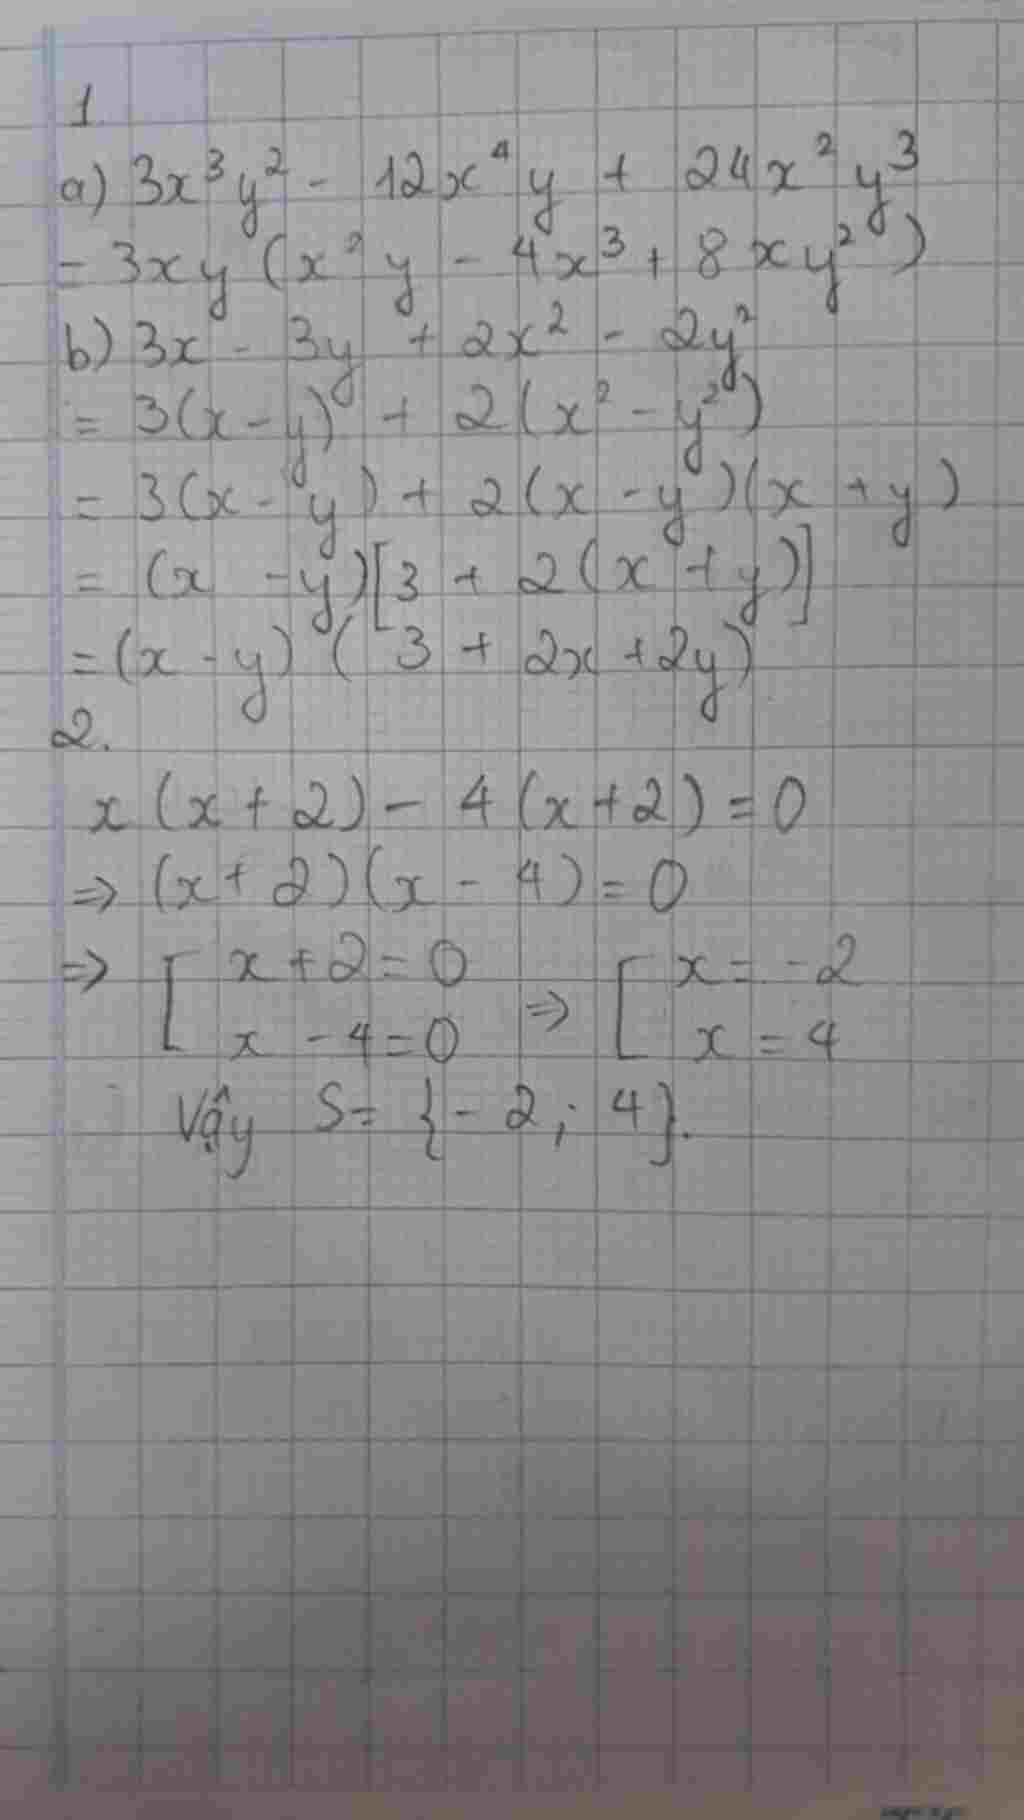 1.
a) 3x³y² - 12x⁴y + 24x²y³
= 3xy (x²y - 4x³ + 8xy²)
b) 3x - 3y + 2x² - 2y²
= 3(x - y) + 2(x² - y²)
= 3(x - y) + 2(x - y)(x + y)
= (x - y)[3 + 2(x + y)]
= (x - y) (3 + 2x + 2y)
2.
x(x + 2) - 4(x + 2) = 0
⇒ (x + 2)(x - 4) = 0
⇒ [ x + 2 = 0 ⇒ [ x = -2
x - 4 = 0 x = 4
Vậy S = {-2; 4}.